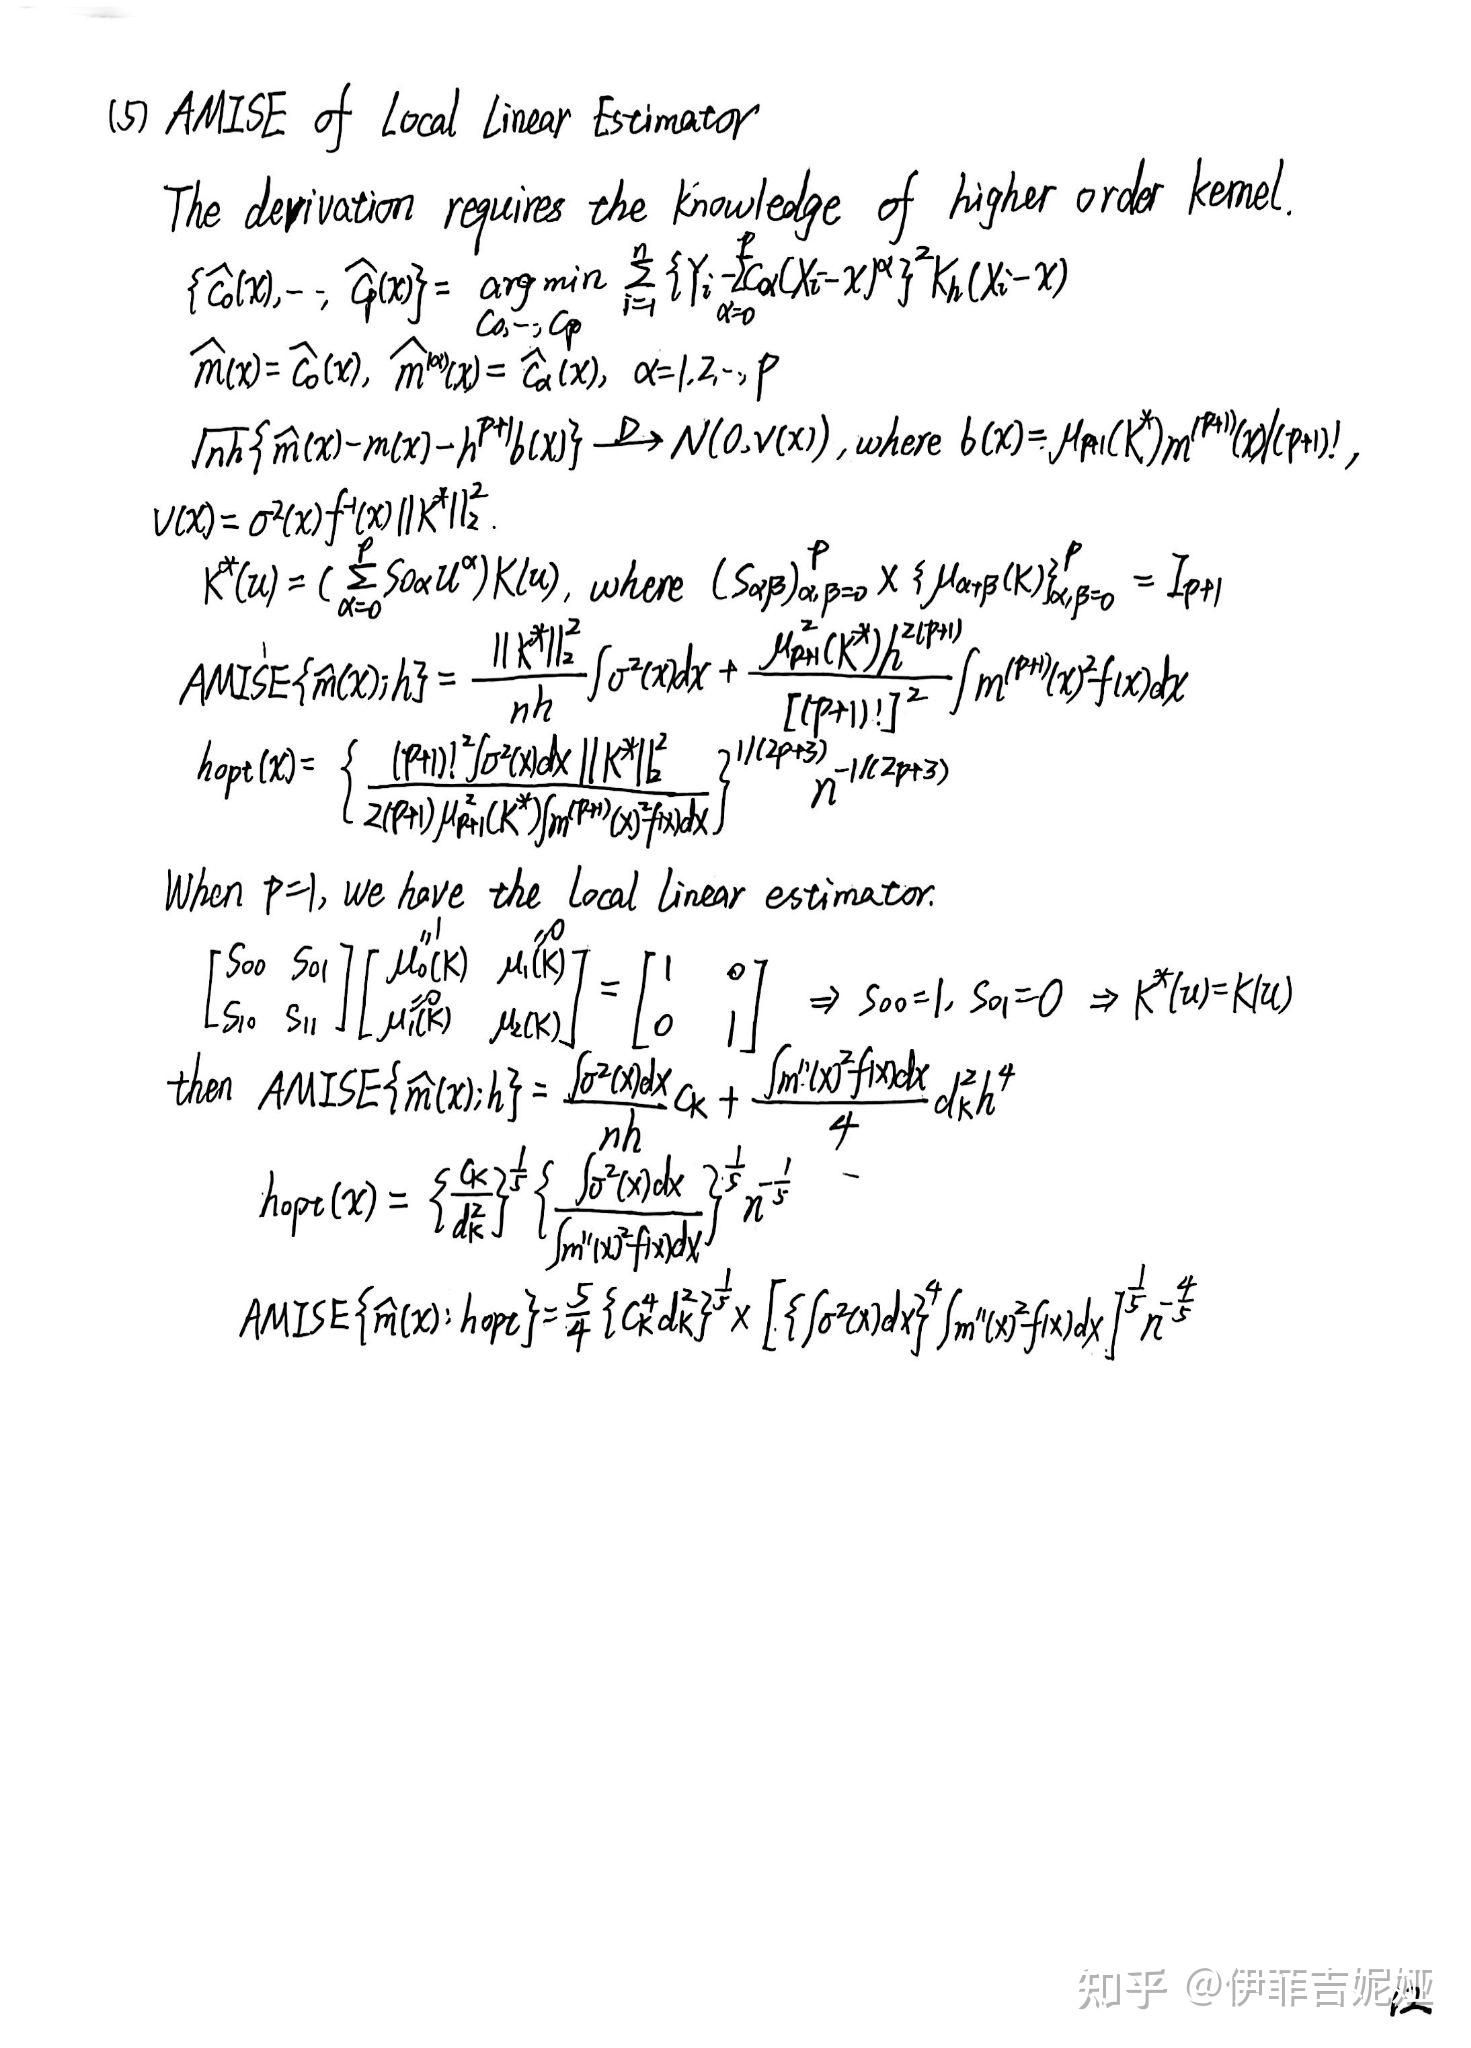 (5) AMISE of Local Linear Estimator
The derivation requires the knowledge of higher order kernel.
{ĉ₀(x),⋯, ĉₚ(x)} = arg min_{c₀,⋯,cₚ} Σ_{i=1}^{n} {Yᵢ - Σ_{α=0}^{p} c_α(Xᵢ-x)^α}² K_h(Xᵢ-x)
m̂(x) = ĉ₀(x), m̂^{(α)}(x) = ĉ_α(x), α=1,2,⋯,p
√nh {m̂(x)-m(x)-h^{p+1}b(x)} →^D N(0,v(x)), where b(x)=μ_{p+1}(K*)m^{(p+1)}(x)/(p+1)!,
v(x) = σ²(x)f⁻¹(x)||K*||₂².
K*(u) = (Σ_{α=0}^{p} s_{0α}u^α)K(u), where (s_{αβ})_{α,β=0}^{p} × {μ_{α+β}(K)}_{α,β=0}^{p} = I_{p+1}
AMISE{m̂(x);h} = ||K*||₂²/nh ∫σ²(x)dx + μ²_{p+1}(K*)h^{2(p+1)}/[(p+1)!]² ∫m^{(p+1)}(x)²f(x)dx
hopt(x) = {(p+1)!²∫σ²(x)dx||K*||₂² / 2(p+1)μ²_{p+1}(K*)∫m^{(p+1)}(x)²f(x)dx}^{1/(2p+3)} n^{-1/(2p+3)}
When p=1, we have the local linear estimator.
[s₀₀ s₀₁; s₁₀ s₁₁][μ₀(K)″1 μ₁(K)″0; μ₁(K)″0 μ₂(K)] = [1 0; 0 1] ⇒ s₀₀=1, s₀₁=0 ⇒ K*(u)=K(u)
then AMISE{m̂(x);h} = ∫σ²(x)dx/nh C_K + ∫m″(x)²f(x)dx/4 d_K²h⁴
hopt(x) = {C_K/d_K²}^{1/5} {∫σ²(x)dx/∫m″(x)²f(x)dx}^{1/5} n^{-1/5}
AMISE{m̂(x);hopt} = 5/4 {C_K⁴d_K²}^{1/5} × [{∫σ²(x)dx}⁴∫m″(x)²f(x)dx]^{1/5} n^{-4/5}
知乎 @伊菲吉妮娅
12